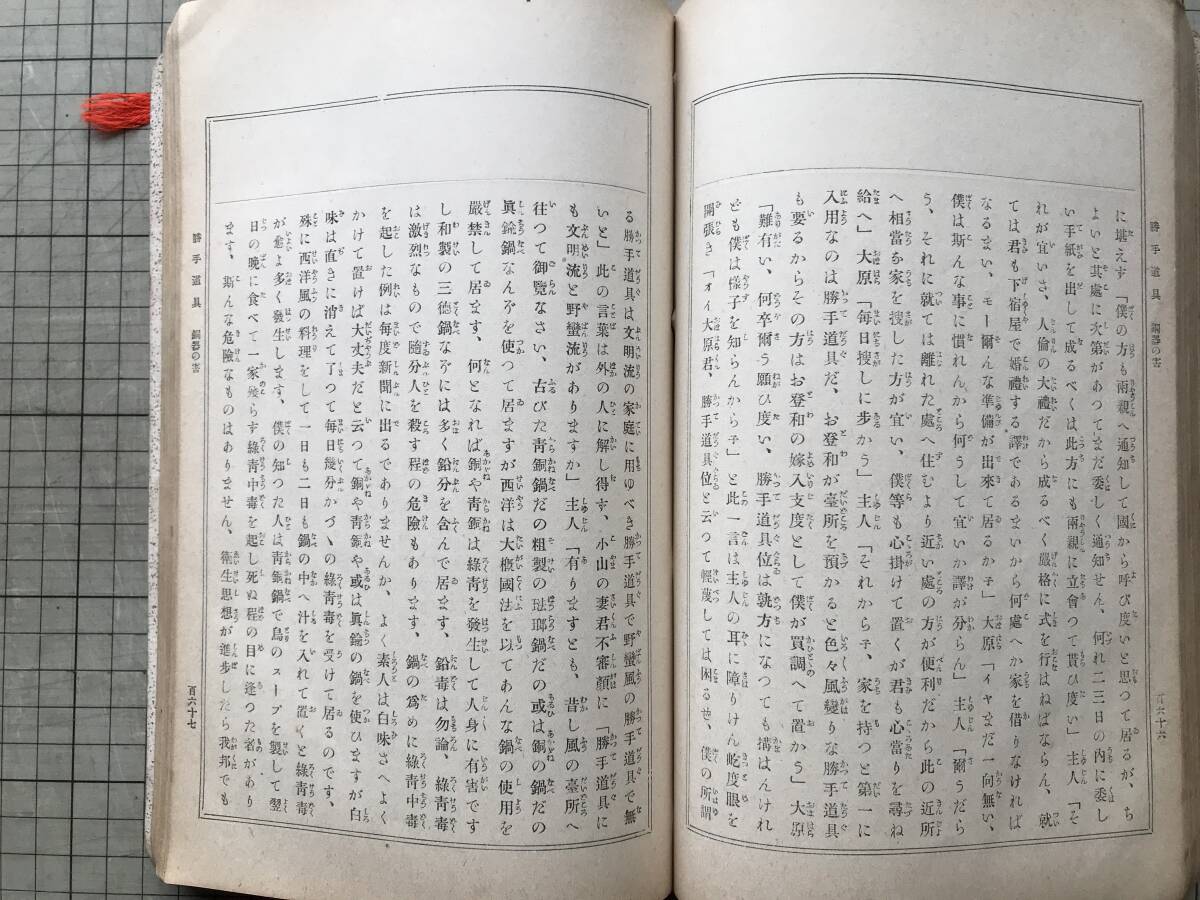 勝手道具　銅器の害
に堪えず「僕の方も兩親へ通知して國から呼び度いと思つて居るが、ち
よいと其處に次第があつてまだ委しく通知せん、何れ二三日の内に委し
い手紙を出して成るべくは此方にも兩親に立會つて貰ひ度い」主人「そ
れが宜いさ、人倫の大禮だから成るべく嚴格に式を行はねばならん、就
ては君も下宿屋で婚禮する譯であるまいから何處へか家を借りなければ
なるまい、モー爾んな準備が出來て居るか子」大原「イヤまだ一向無い、
僕は斯んな事に慣れんから何うして宜いか譯が分らん」主人「爾うだら
う、それに就ては離れた處へ住むより近い處の方が便利だから此の近所
へ相當な家を搜した方が宜い、僕等も心掛けて置くが君も心當りを尋ね
給へ」大原「毎日搜しに歩かう」主人「それから子、家を持つと第一に
入用なのは勝手道具だ、お登和が臺所を預かると色々風變りな勝手道具
も要るからその方はお登和の嫁入支度として僕が買調へて置かう」大原
「難有い、何卒爾う願ひ度い、勝手道具位は孰方になつても搆はんけれ
ども僕は樣子を知らんから子」と此一言は主人の耳に障りけん屹度眼を
開張き「オイ大原君、勝手道具位と云つて輕蔑しては困るぜ、僕の所謂
百六十六
る勝手道具は文明流の家庭に用ゆべき勝手道具で野蠻風の勝手道具で無
いと」此の言葉は外の人に解し得ず、小山の妻君不審顏に「勝手道具に
も文明流と野蠻流がありますか」主人「有りますとも、昔し風の臺所へ
往つて御覽なさい、古びた靑銅鍋だの粗製の琺瑯鍋だの或は銅の鍋だの
眞鍮鍋なんぞを使つて居ますが西洋は大概國法を以てあんな鍋の使用を
嚴禁して居ます、何となれば銅や靑銅は綠靑を發生して人身に有害です
し和製の三德鍋なぞには多く鉛分を含んで居ます、鉛毒は勿論、綠靑毒
は激烈なもので隨分人を殺す程の危險もあります、鍋の爲めに綠靑中毒
を起した例は毎度新聞に出るでありませんか、よく素人は白味さへよく
かけて置けば大丈夫だと云つて銅や靑銅や或は眞鍮の鍋を使ひますが白
味は直きに消えて了つて毎日幾分かづゝの綠靑毒を受けて居るのです、
殊に西洋風の料理をして一日も二日も鍋の中へ汁を入れて置くと綠靑毒
が愈よ多く發生します、僕の知つた人は靑銅鍋で鳥のスープを製して翌
日の晩に食べて一家殘らず綠靑中毒を起し死ぬ程の目に逢つた者があり
ます、斯んな危險なものはありません、衞生思想が進歩したら我邦でも
勝手道具　銅器の害
百六十七